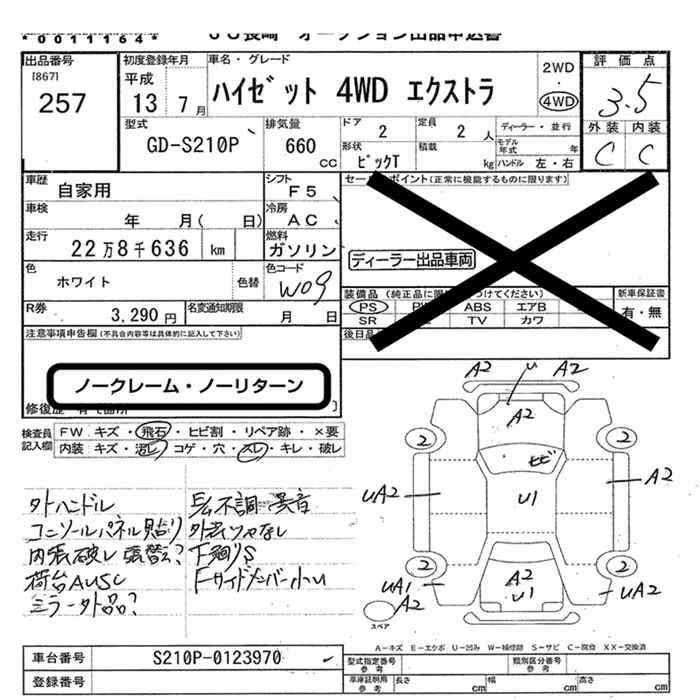 *0011164*
出品番号
[867]
257
初度登録年月
平成
13 7月
車名・グレード
ハイゼット 4WD エクストラ
2WD
4WD
評価点
3.5
外装 内装
C C
型式
GD-S210P
排気量
660
cc
ドア
2
定員
2人
ディーラー・並行
形状
ピックT
積載
kg
モデル年式
年
ハンドル 左・右
車歴
自家用
シフト
F5
セールスポイント(正常に機能するものに限ります)
車検
年 月( 日)
冷房
AC
走行
22万8千636 km
燃料
ガソリン
ディーラー出品車両
色
ホワイト
色替
色コード
W09
R券
3,290円
名変通知期限
月 日
装備品
PS
ABS エアB
SR
TV カワ
新車保証書
有・無
後日品
注意事項申告欄(不具合内容等は具体的に記入して下さい)
ノークレーム・ノーリターン
検査員記入欄
FW キズ・飛石・ヒビ割・リペア跡・×要
内装 キズ・汚レ・コゲ・穴・スレ・キレ・破レ
A2 U A2
A2
2 2
ヒビ
UA2 U1 A2
2 2
UA1 A2 U1 UA2
A2
スペア
外ハンドル
コンソールパネル貼り
内張破レ 張替え?
荷台AUSC
ミラー外品?
不調 異音
下廻りS
FサイドメンバーU
A-キズ E-エクボ U-凹み W-補修跡 S-サビ C-腐食 XX-交換済
車台番号
S210P-0123970
登録番号
型式指定番号
参考
類別区分番号
参考
車庫証明用
参考
長さ cm 幅 cm 高さ cm